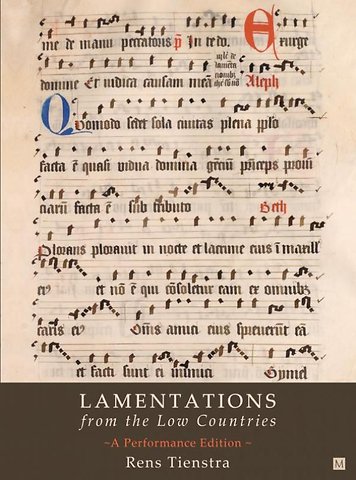 me de manu peccatoris p In te do. Exurge
domine Et iudica causam meā Aleph
Quomodo sedet sola ciuitas plena pplo
facta ē quasi uidua domina gēciū p̄nceps prouī
ciarū facta ē sub tributo Beth
Plorans plorauit in nocte et lacrime eius ī maxill
ei⁹ et nō ē qui cōsoletur eam ex omnibꝫ
caris ei⁹ Oīns amici eius spreuerūt eā
et facti sunt ei inimici Gymel
LAMENTATIONS
from the Low Countries
~A Performance Edition ~
Rens Tienstra
M